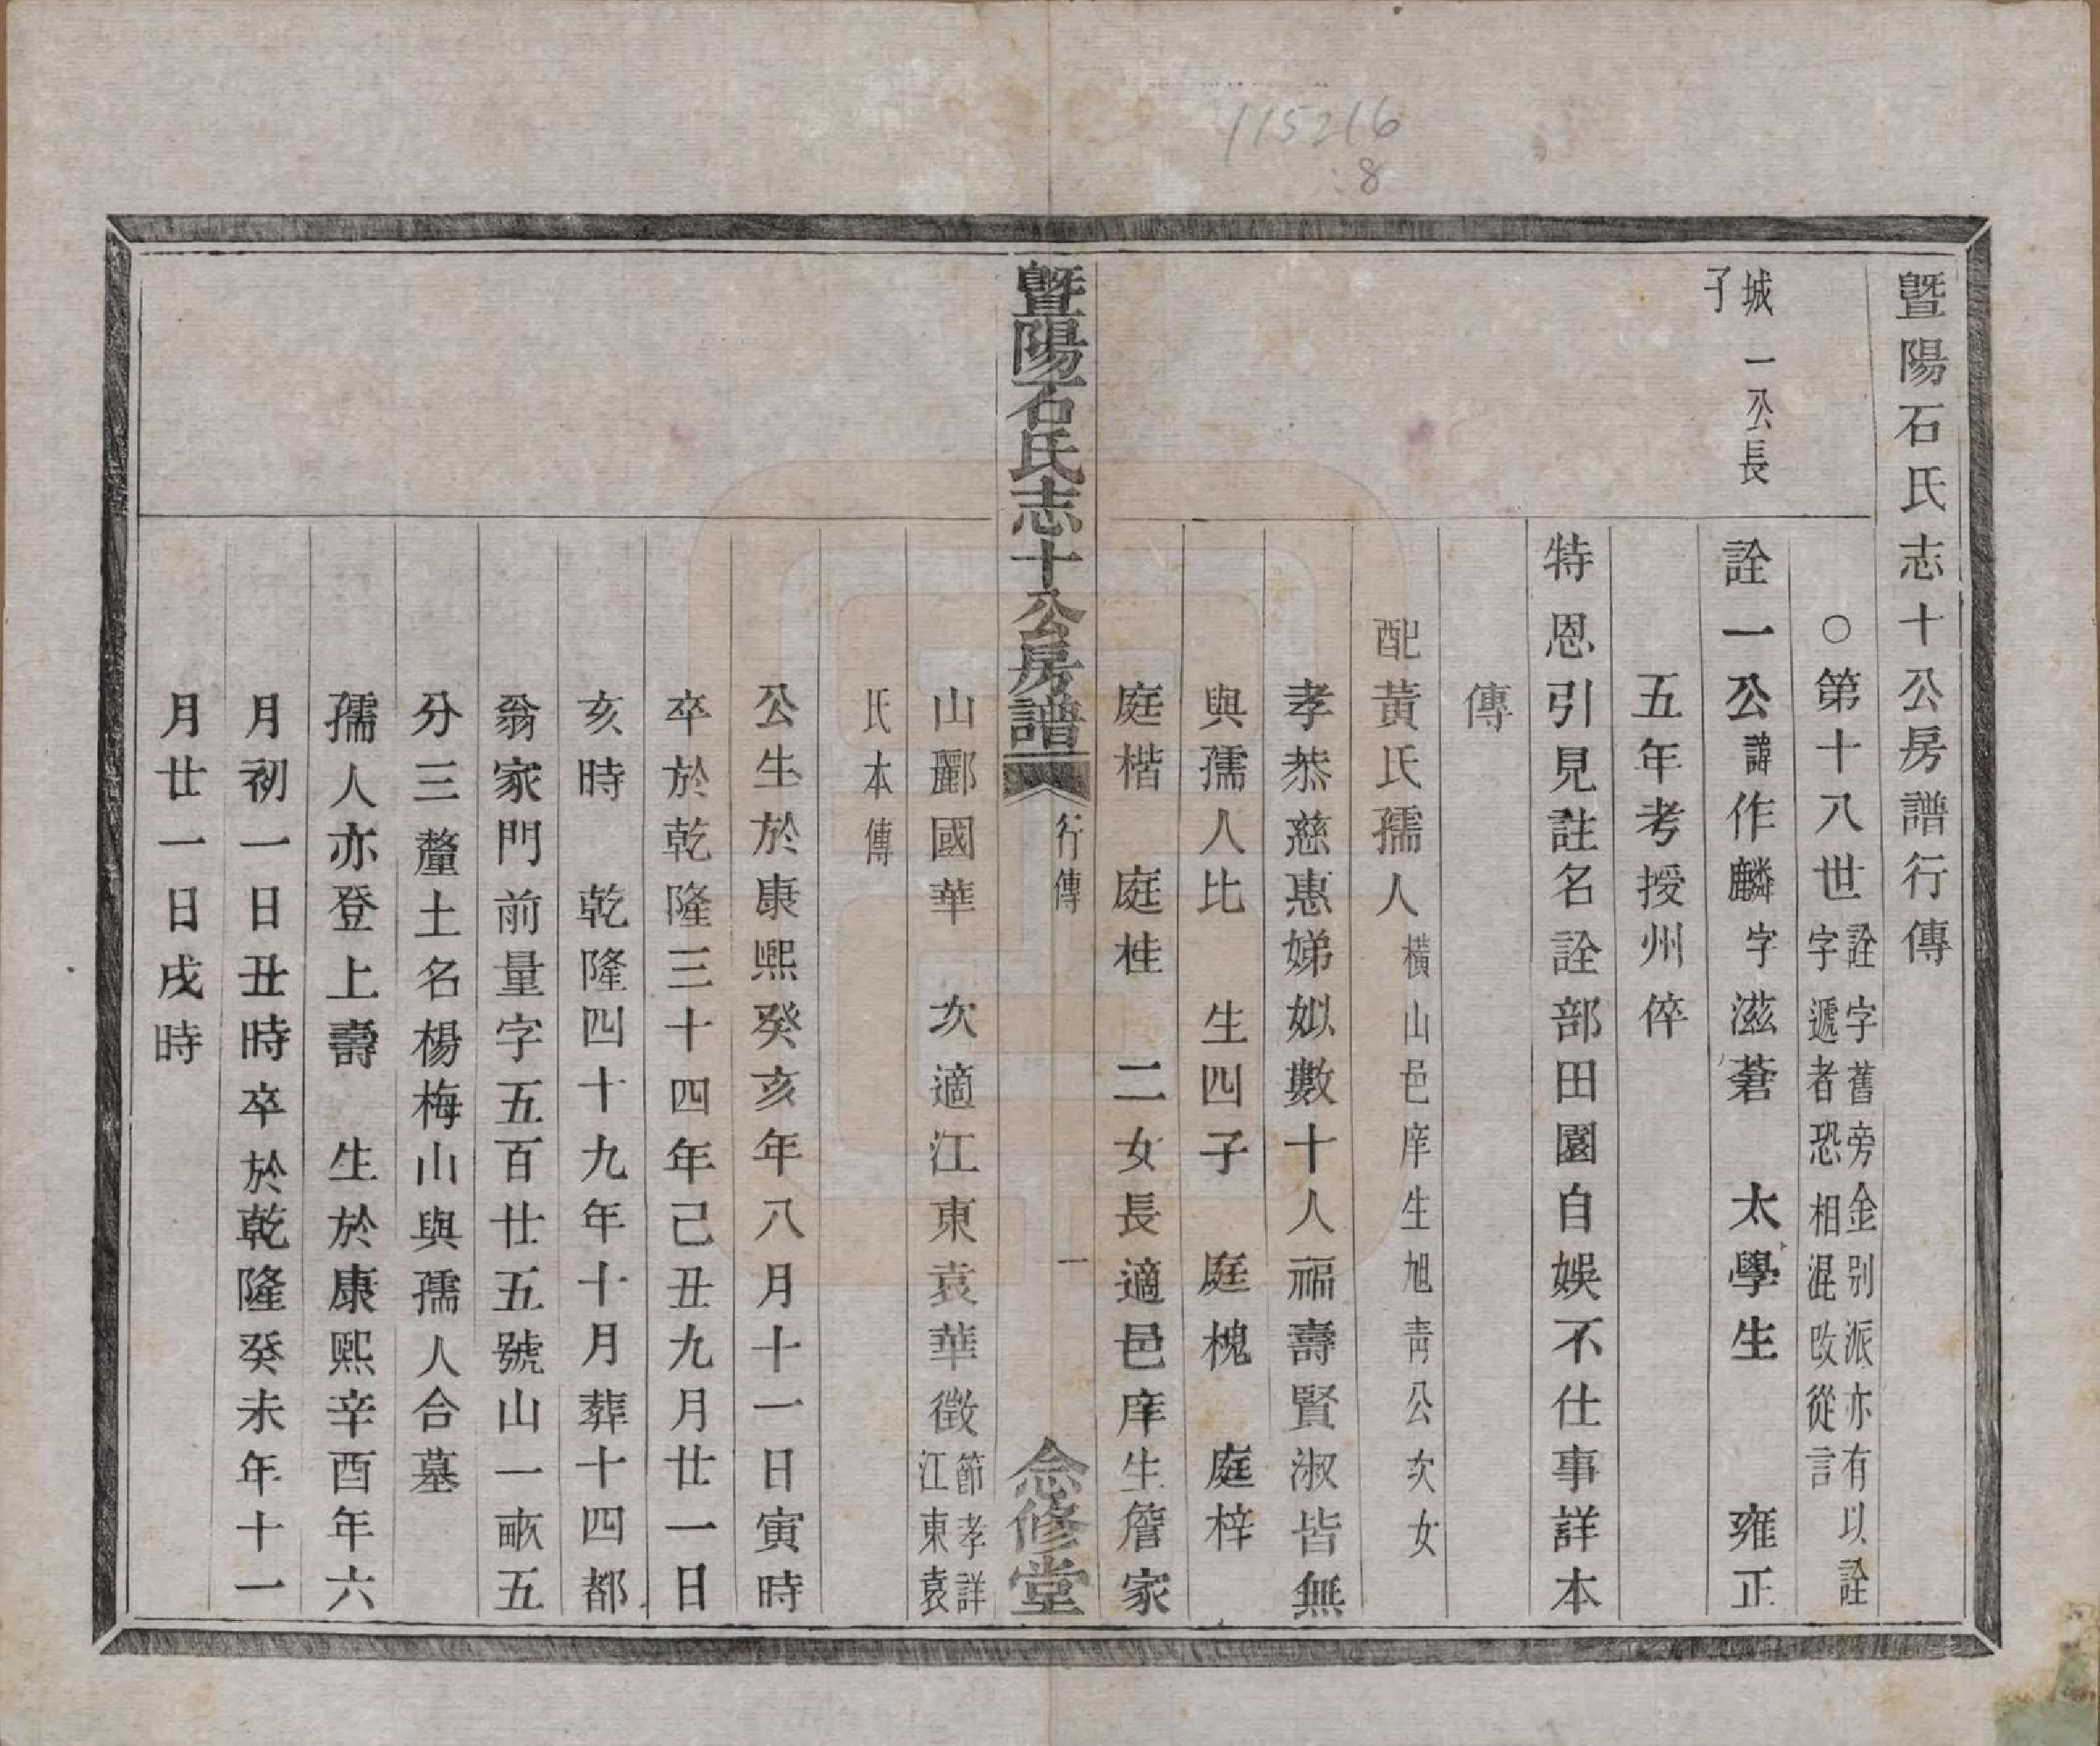 115216
:8
暨陽石氏志十公房譜行傳
○第十八世
詮字舊旁金別派亦有以詮
字遞者恐相混改從言
城一公長
子
詮一公諱作麟字滋蒼　太學生　雍正
五年考授州倅
特恩引見註名詮部田園自娛不仕事詳本
傳
配黃氏孺人橫山邑庠生旭靑公次女
孝恭慈惠娣姒數十人福壽賢淑皆無
與孺人比　生四子　庭槐　庭梓
庭楷　庭桂　二女長適邑庠生詹家
暨陽石氏志十公房譜　行傳　一　念修堂
山酈國華　次適江東袁華徵
節孝詳
江東袁
氏本傳
公生於康熙癸亥年八月十一日寅時
卒於乾隆三十四年己丑九月廿一日
亥時　乾隆四十九年十月葬十四都
翁家門前量字五百廿五號山一畝五
分三釐土名楊梅山與孺人合墓
孺人亦登上壽　生於康熙辛酉年六
月初一日丑時卒於乾隆癸未年十一
月廿一日戌時